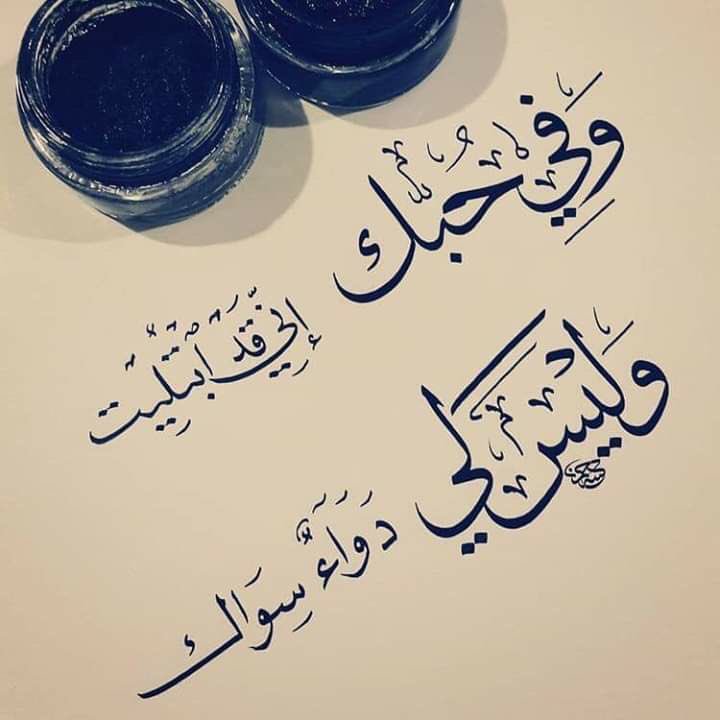 وَفِي حُبِّك
إنّي قَد ابْتُليت
وَلَيْسَ لِي
دَوَاءٌ سِوَاك